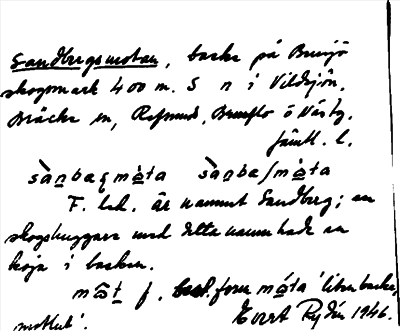 Sandbergsmotan, backe på Brunjö
skogsmark 400 m. S n i Vildsjön,
Bräcke sn, Refsund, Brunflo o Näsby.
Jämtl. l.
sànbaqmòta sànba/mòta
F. led. är namnet Sandberg; en
skogshuggare med detta namn hade en
koja i backen.
mōt f. form mota 'liten backe,
motlut'. Evert Rydén 1946.